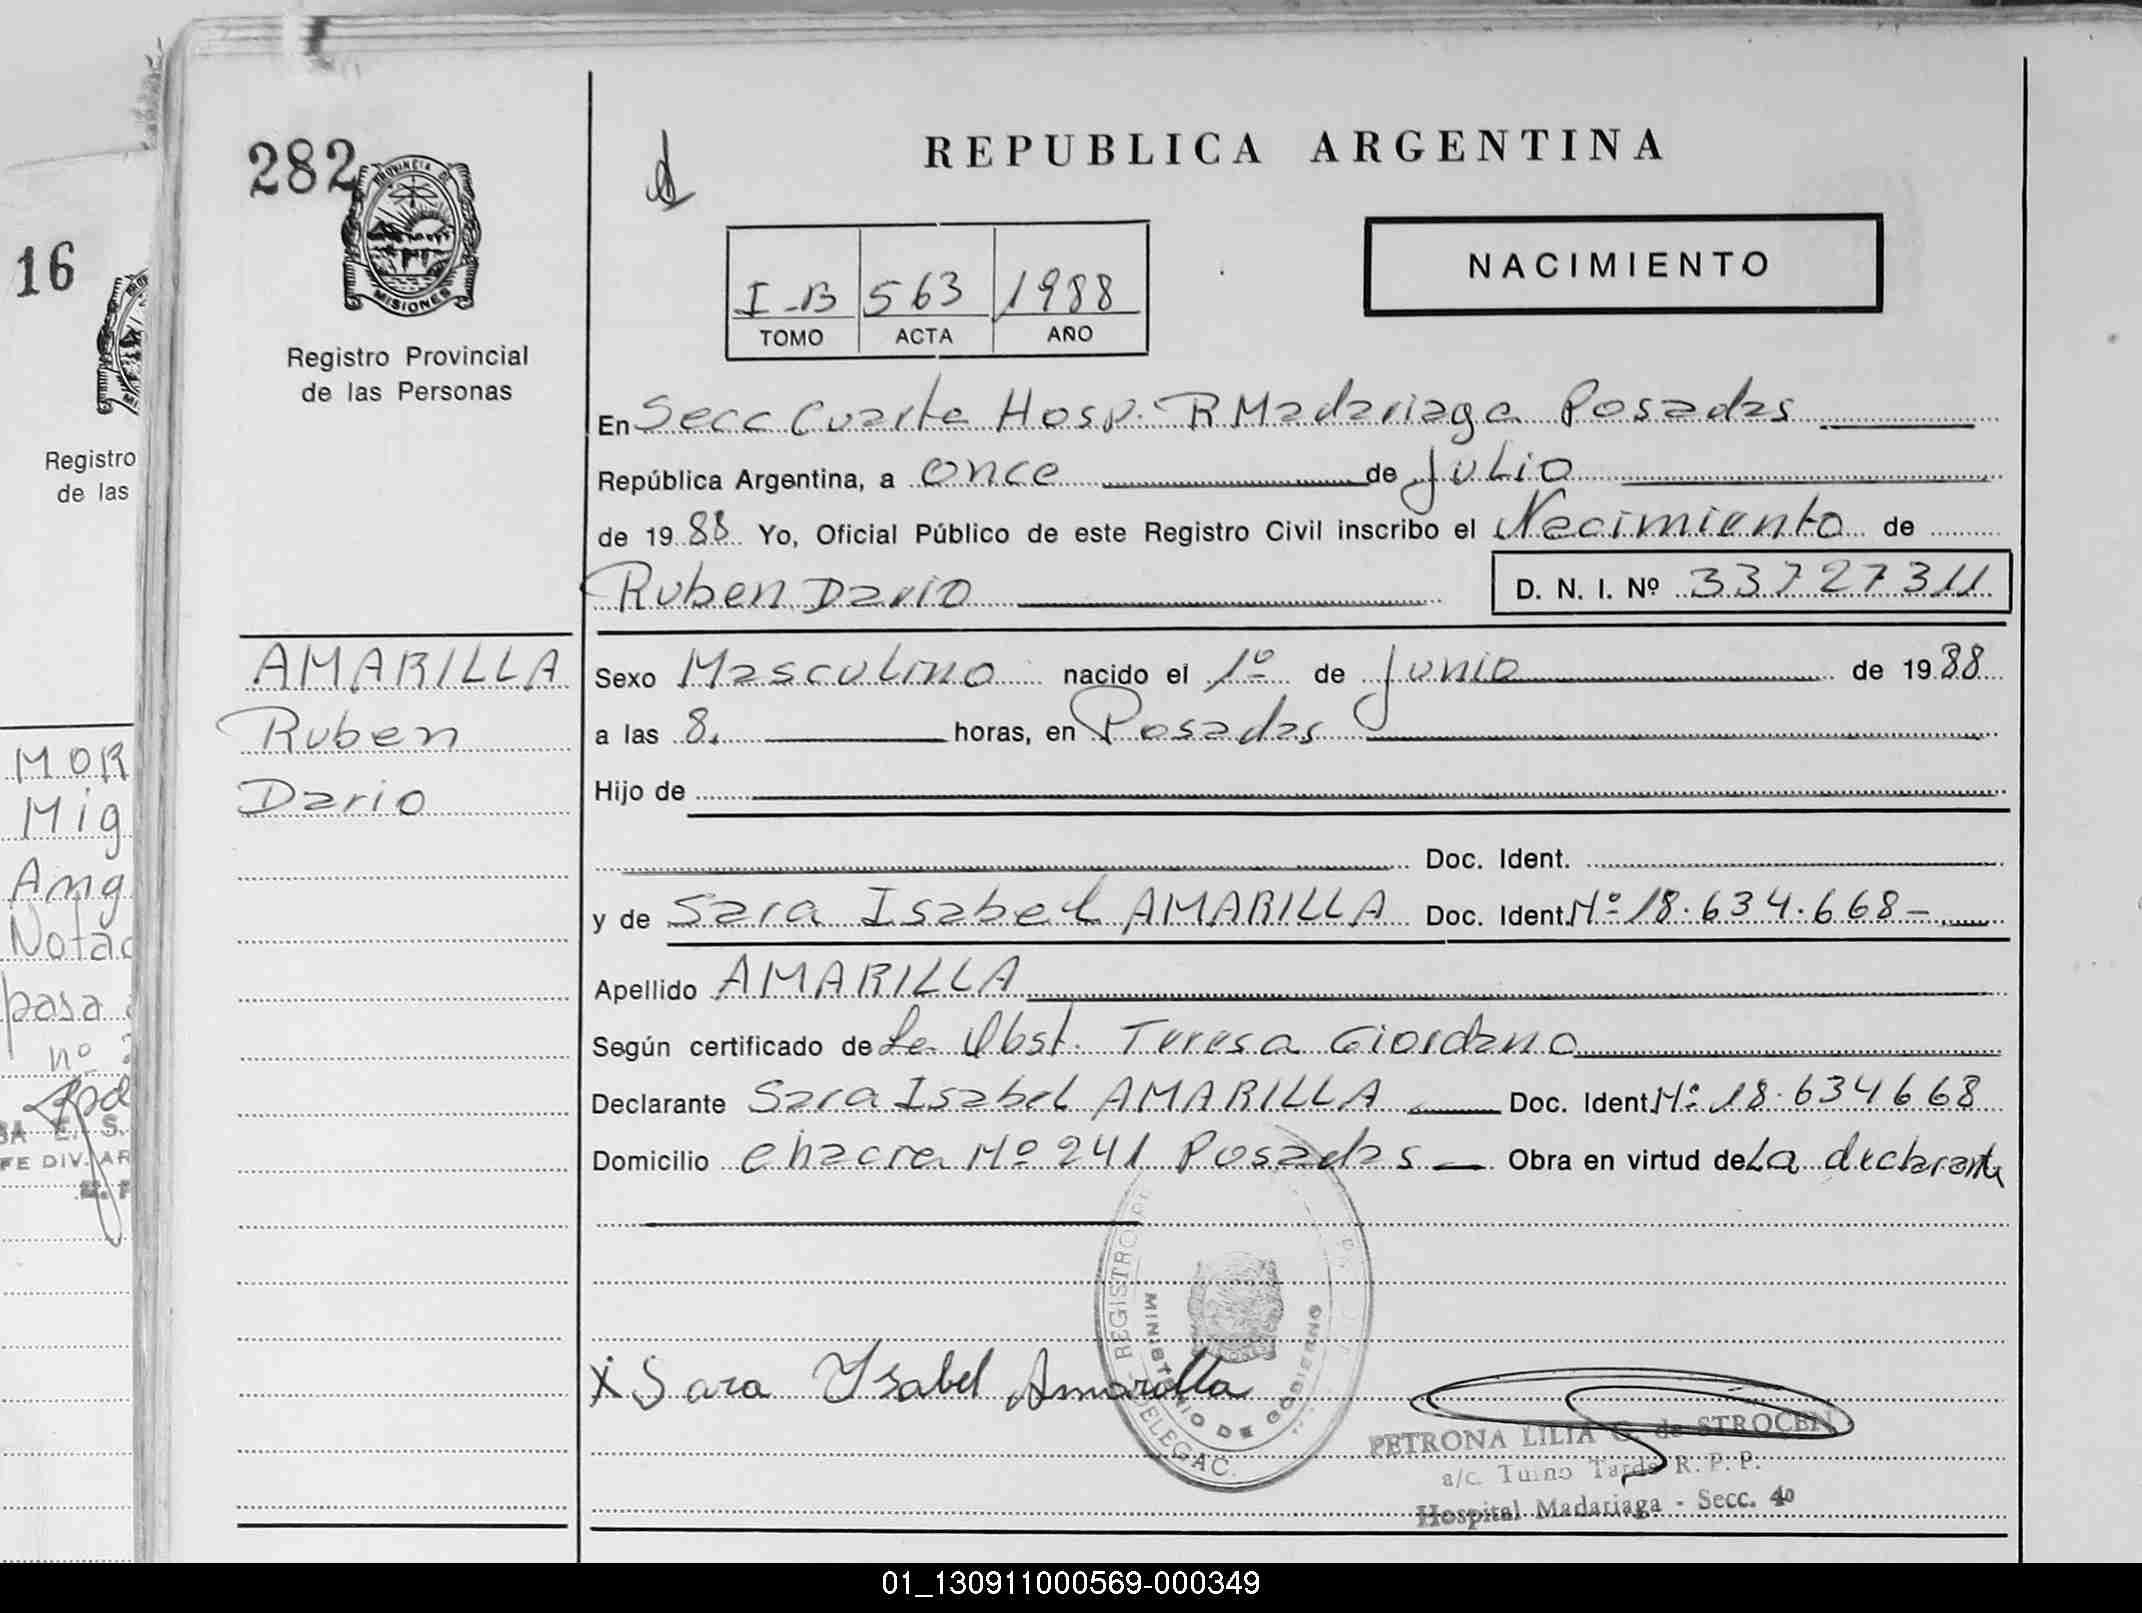 282
PROVINCIA DE
MISIONES
Registro Provincial
de las Personas
REPUBLICA ARGENTINA
I-B 563 1988
TOMO ACTA AÑO
NACIMIENTO
En Secc Cuarta Hosp. R Madariaga Posadas
República Argentina, a once de Julio
de 1988 Yo, Oficial Público de este Registro Civil inscribo el Nacimiento de
Ruben Dario D. N. I. Nº 33727311
AMARILLA
Ruben
Dario
Sexo Masculino nacido el 1º de Junio de 1988
a las 8. horas, en Posadas
Hijo de
Doc. Ident.
y de Sara Isabel AMARILLA Doc. Ident. Nº 18.634.668-
Apellido AMARILLA
Según certificado de La Obst. Teresa Giordano
Declarante Sara Isabel AMARILLA Doc. Ident. Nº 18.634668
Domicilio chacra Nº 241 Posadas Obra en virtud de La declarante
REGISTRO
MINISTERIO DE GOBIERNO
DELEGAC.
X Sara Ysabel Amarilla
PETRONA LILIA G. de STROCEN
a/c. Turno Tarde R. P. P.
Hospital Madariaga - Secc. 4º
16
Registro
de las
MOR
Mig
Ang
Notac
pasa
nº
E. S.
FE DIV. AR
01_130911000569-000349